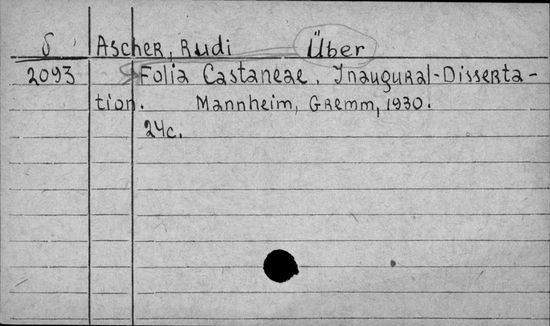 δ Ascher, Rudi Über
2093 Folia Castaneae. Inaugural-Disserta-
tion. Mannheim, Gremm, 1930.
24c.